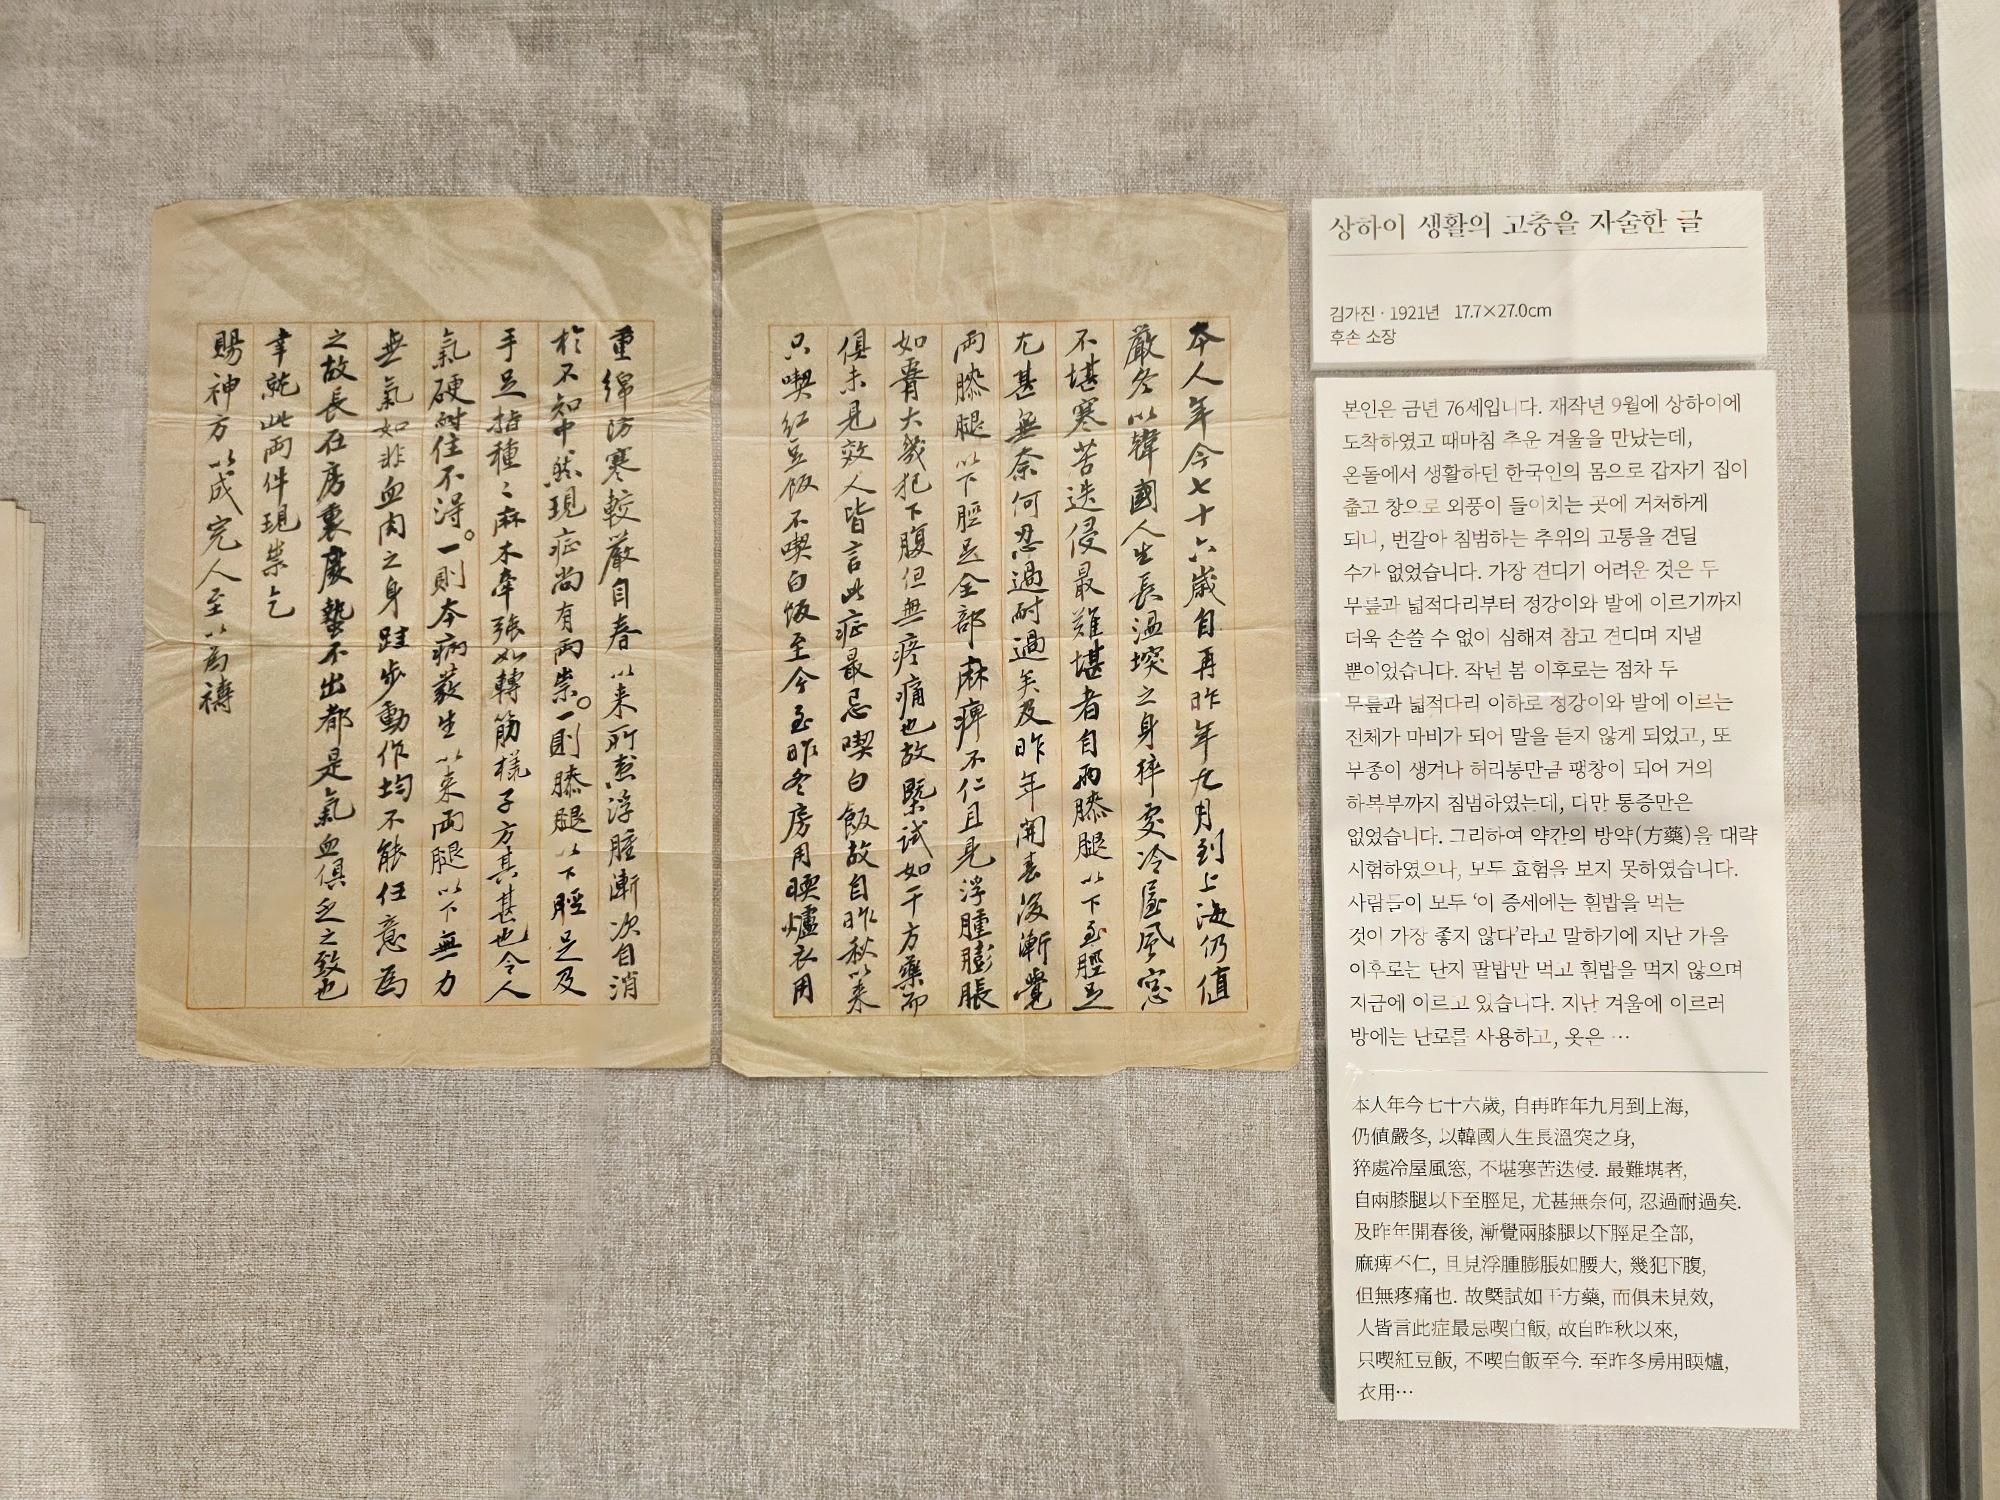 本人年今七十六歲自再昨年九月到上海仍值
嚴冬以韓國人生長溫堗之身猝處冷屋風窓
不堪寒苦迭侵最難堪者自両膝腿以下至脛足
尤甚無奈何忍過耐過矣及昨年開春後漸覺
両膝腿以下脛足全部麻痺不仁且見浮腫膨脹
如腰大幾犯下腹但無疼痛也故槩試如干方藥而
俱未見效人皆言此症最忌喫白飯故自昨秋以來
只喫紅豆飯不喫白飯至今至昨冬房用暖爐衣用
重綿防寒較嚴自春以来所患浮腫漸次自消
於不知中然現症尚有両祟。一則膝腿以下脛足及
手足指種々麻木牽張如轉筋樣子方其甚也令人
氣硬耐住不得。一則本病發生以来両腿以下無力
無氣如非血肉之身跬步動作均不能任意為
之故長在房裏廢蟄不出都是氣血俱乏之致也
幸就此両件現祟乞
賜神方以成完人至以為禱
상하이 생활의 고충을 자술한 글
김가진 · 1921년 17.7×27.0cm
후손 소장
본인은 금년 76세입니다. 재작년 9월에 상하이에
도착하였고 때마침 추운 겨울을 만났는데,
온돌에서 생활하던 한국인의 몸으로 갑자기 집이
춥고 창으로 외풍이 들이치는 곳에 거처하게
되니, 번갈아 침범하는 추위의 고통을 견딜
수가 없었습니다. 가장 견디기 어려운 것은 두
무릎과 넓적다리부터 정강이와 발에 이르기까지
더욱 손쓸 수 없이 심해져 참고 견디며 지낼
뿐이었습니다. 작년 봄 이후로는 점차 두
무릎과 넓적다리 이하로 정강이와 발에 이르는
전체가 마비가 되어 말을 듣지 않게 되었고, 또
부종이 생겨나 허리통만큼 팽창이 되어 거의
하복부까지 침범하였는데, 다만 통증만은
없었습니다. 그리하여 약간의 방약(方藥)을 대략
시험하였으나, 모두 효험을 보지 못하였습니다.
사람들이 모두 ‘이 증세에는 흰밥을 먹는
것이 가장 좋지 않다’라고 말하기에 지난 가을
이후로는 단지 팥밥만 먹고 흰밥을 먹지 않으며
지금에 이르고 있습니다. 지난 겨울에 이르러
방에는 난로를 사용하고, 옷은 …
本人年今七十六歲, 自再昨年九月到上海,
仍値嚴冬, 以韓國人生長溫突之身,
猝處冷屋風窓, 不堪寒苦迭侵. 最難堪者,
自兩膝腿以下至脛足, 尤甚無奈何, 忍過耐過矣.
及昨年開春後, 漸覺兩膝腿以下脛足全部,
麻痺不仁, 且見浮腫膨脹如腰大, 幾犯下腹,
但無疼痛也. 故槩試如干方藥, 而俱未見效,
人皆言此症最忌喫白飯, 故自昨秋以來,
只喫紅豆飯, 不喫白飯至今. 至昨冬房用暎爐,
衣用…